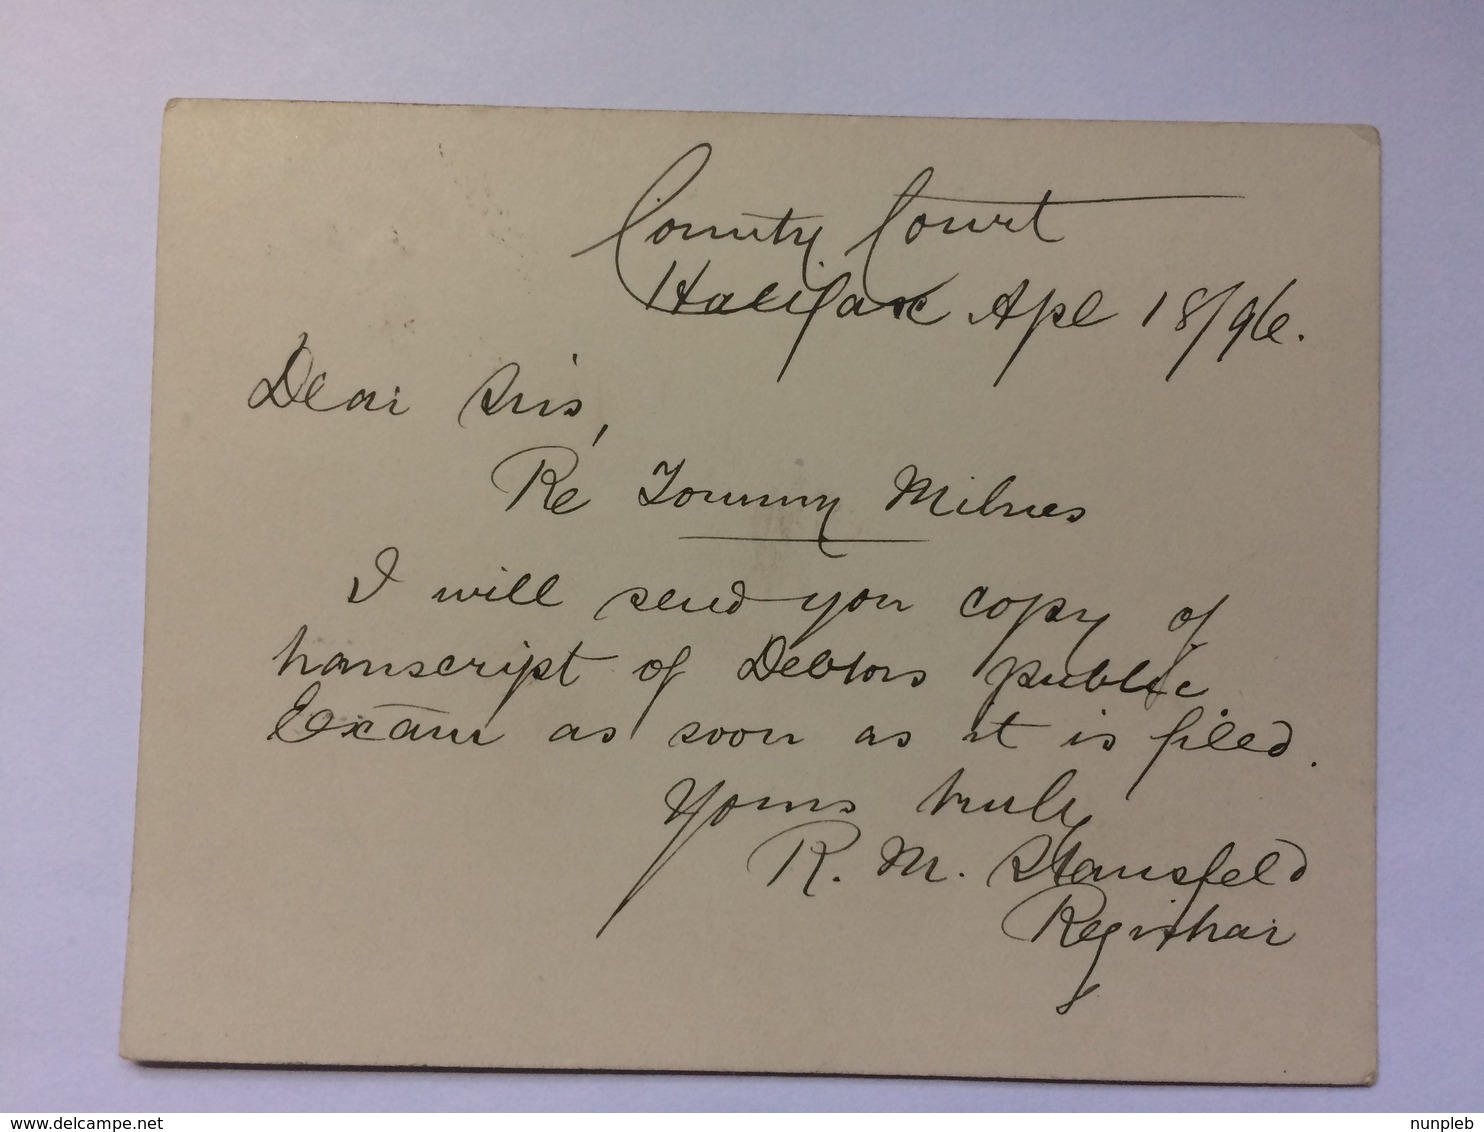 County Court
Halifax Apl 18/96.
Dear Sirs,
Re Tommy Milnes
I will send you copy of
transcript of Debtors public
Exam as soon as it is filed.
Yours truly
R. M. Stansfeld
Registrar
delcampe.net
nunpleb